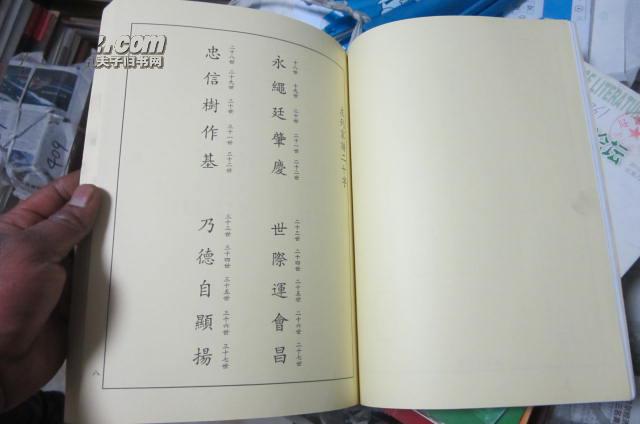 二十字
十八世 十九世 二十世 二十一世 二十二世
永繩廷肇慶
二十三世 二十四世 二十五世 二十六世 二十七世
世際運會昌
二十八世 二十九世 三十世 三十一世 三十二世
忠信樹作基
三十三世 三十四世 三十五世 三十六世 三十七世
乃德自顯揚
八
.com
夫子旧书网
409
坛